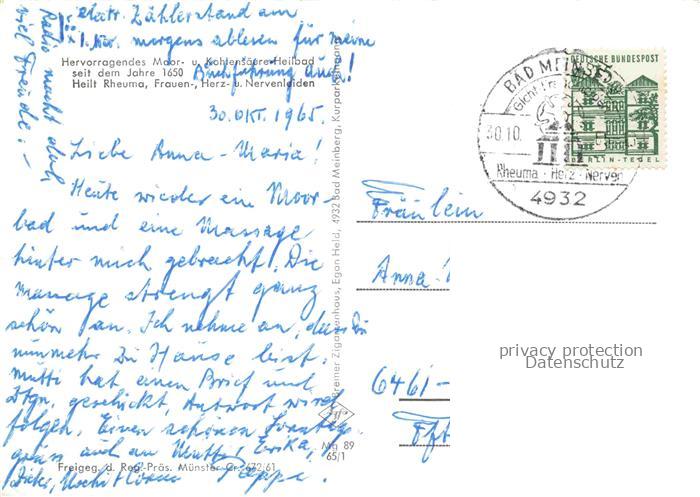 elektr. Zählerstand am
1. Nov. morgens ablesen für meine
Hervorragendes Moor- u. Kohlensäure-Heilbad
seit dem Jahre 1650
Buchführung durch!
Heilt Rheuma, Frauen-, Herz- u. Nervenleiden
Radio macht doch
viel Freude! -
30. Okt. 1965
Liebe Anna-Maria!
Heute wieder ein Moor-
bad und eine Massage
hinter mich gebracht. Die
Massage strengt ganz
schön an. Ich nehme an, dass Du
nunmehr zu Hause bist.
Mutti hat einen Brief und
geschickt, Antwort wird
folgen. Einen schönen Sonntag.
Gruss auch an Mutti, Erika,
Freigeg. d. Reg.-Präs. Münster Cr. 672/61
Dieter, Uschi
Pappa.
Egon Held, 4932 Bad Meinberg, Kurparkeingang
Mg 89
65/1
DEUTSCHE BUNDESPOST
BERLIN-TEGEL
BAD MEINBERG
30.10.
Rheuma · Herz · Nerven
4932
Fräulein
Anna-
6461-
privacy protection
Datenschutz